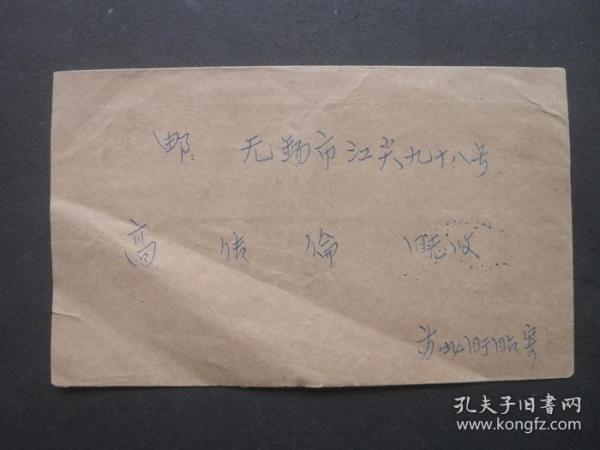 邮: 无锡市江尖九十八号
高 传 伦 同志收
苏北盱眙寄
孔夫子旧书网
www.kongfz.com